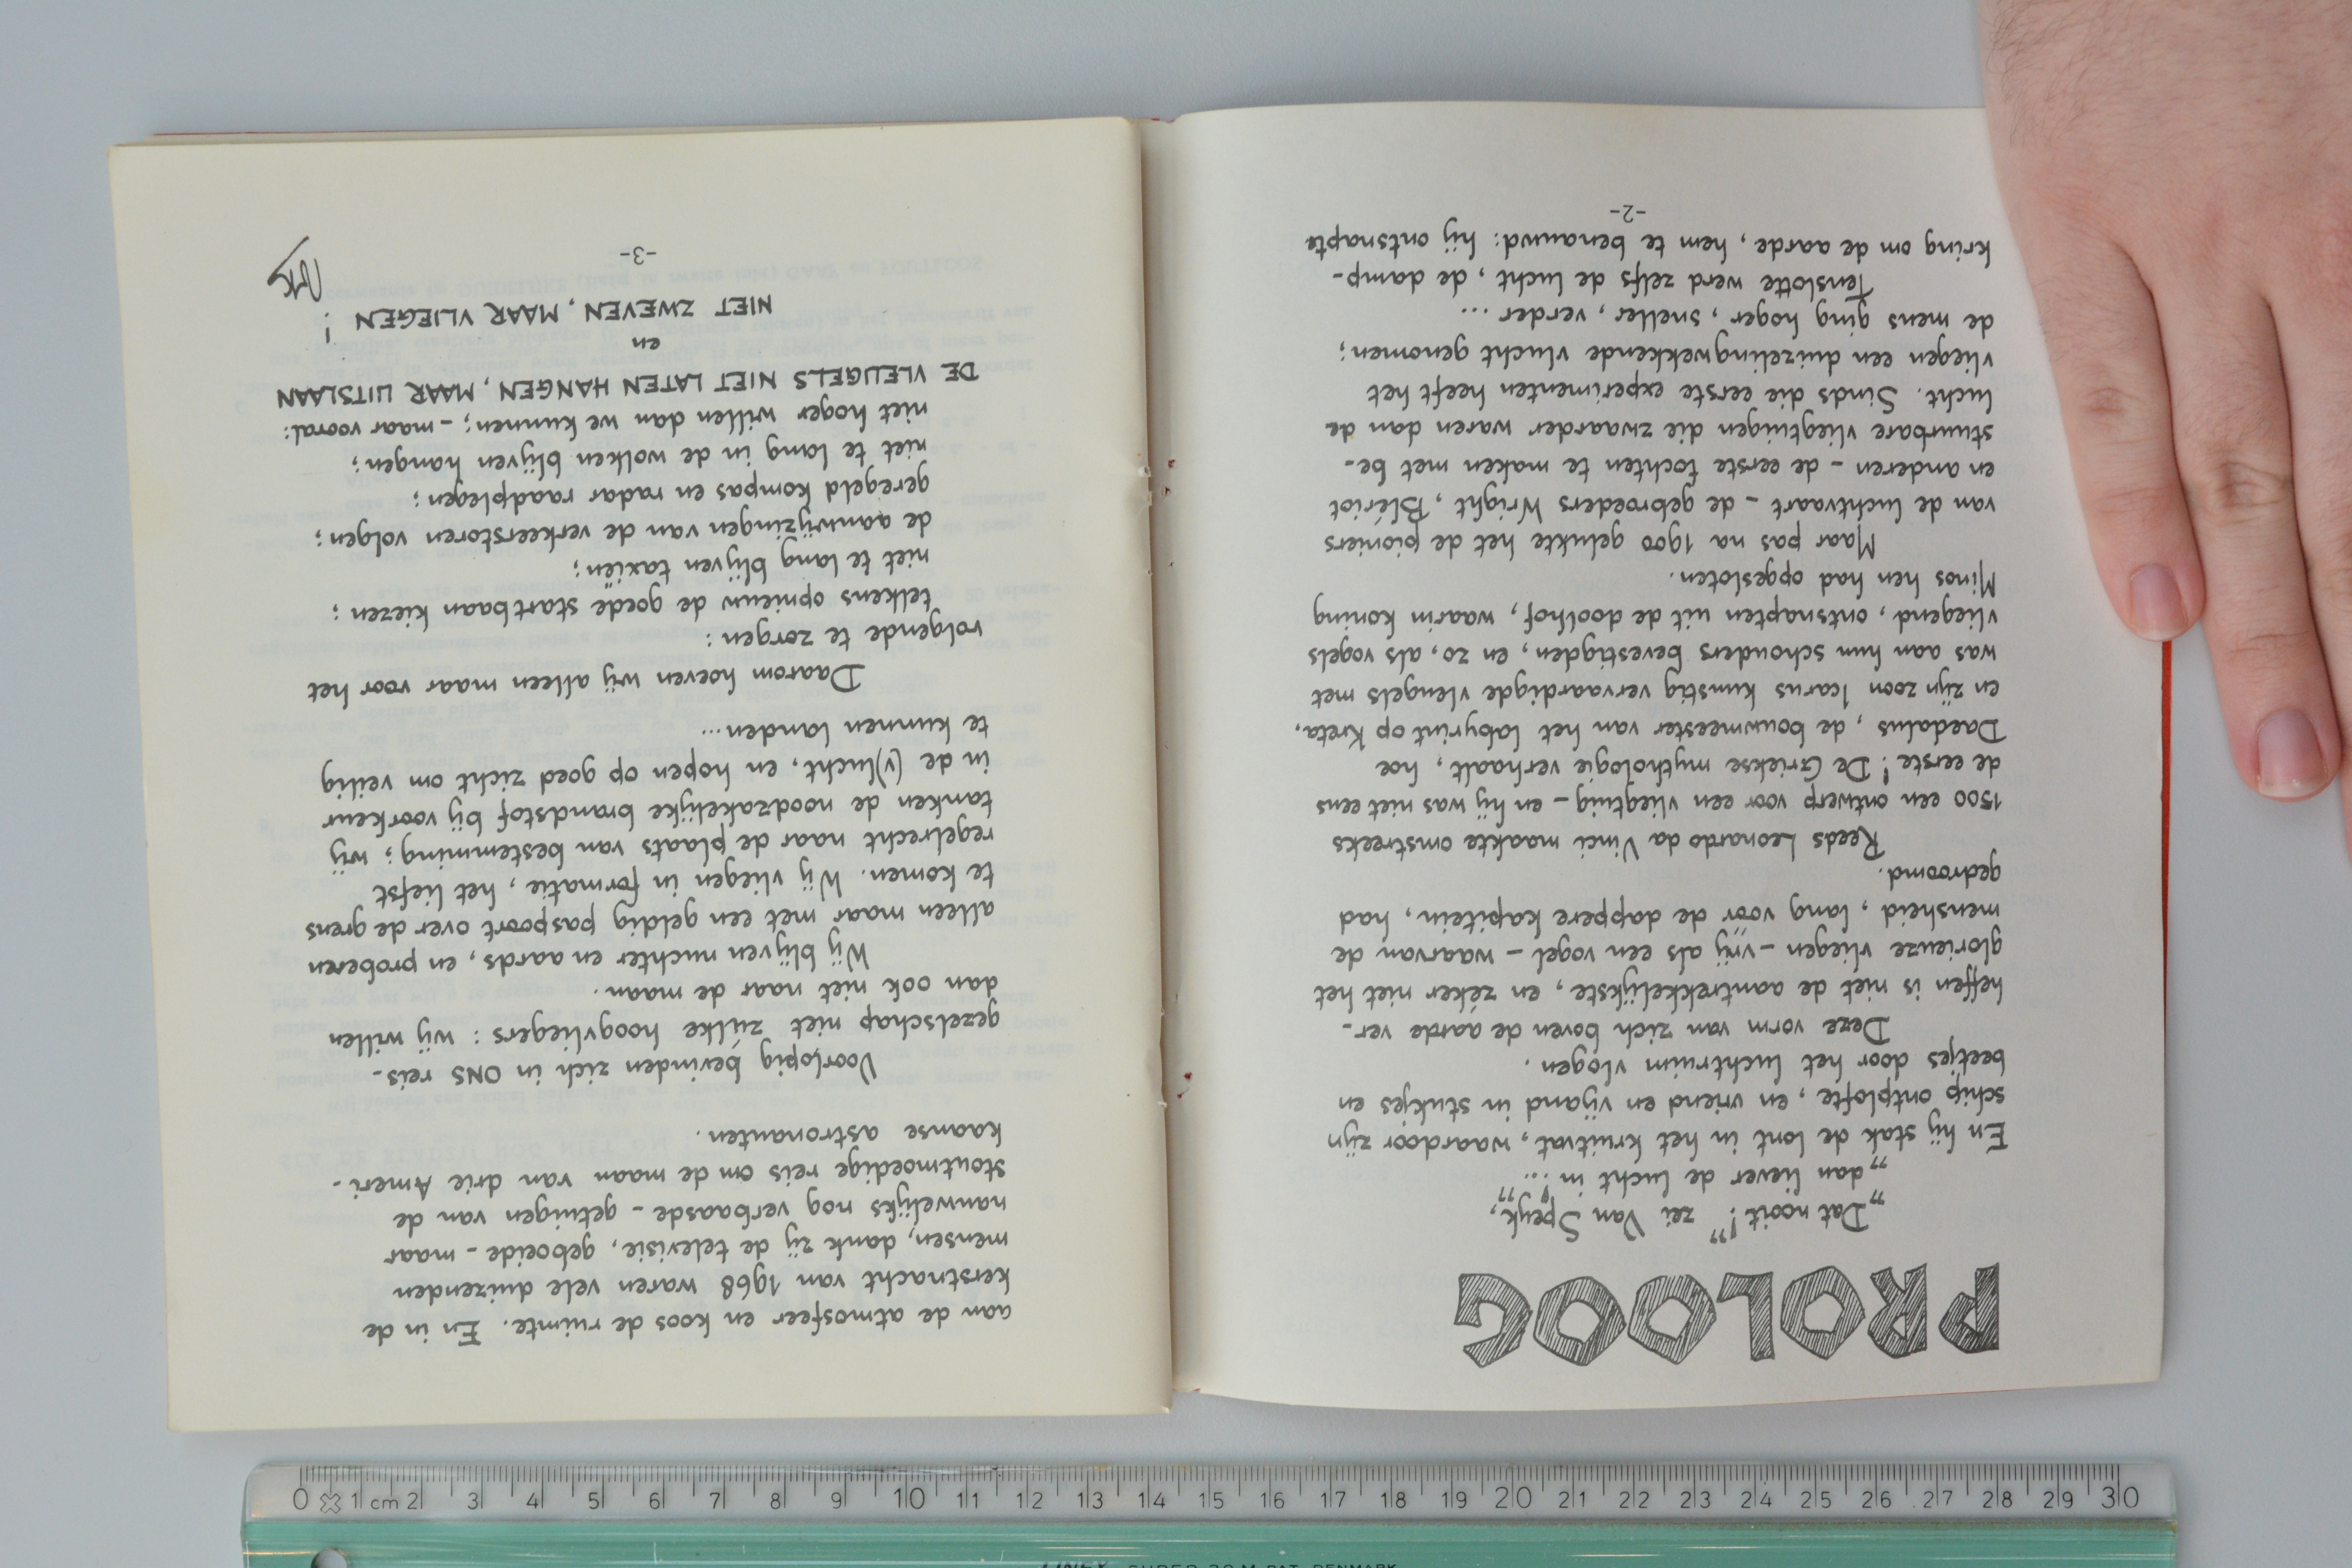 PROLOOG
„Dat nooit!” zei Van Speyk,
„dan liever de lucht in!...”
En hij stak de lont in het kruitvat, waardoor zijn
schip ontplofte, en vriend en vijand in stukjes en
beetjes door het luchtruim vlogen.
Deze vorm van zich boven de aarde ver-
heffen is niet de aantrekkelijkste, en zéker niet het
glorieuze vliegen - vrij als een vogel - waarvan de
mensheid, lang vóór de dappere kapitein, had
gedroomd.
Reeds Leonardo da Vinci maakte omstreeks
1500 een ontwerp voor een vliegtuig - en hij was niet eens
de eerste! De Griekse mythologie verhaalt, hoe
Daedalus, de bouwmeester van het labyrint op Kreta,
en zijn zoon Icarus kunstig vervaardigde vleugels met
was aan hun schouders bevestigden, en zo, als vogels
vliegend, ontsnapten uit de doolhof, waarin koning
Minos hen had opgesloten.
Maar pas na 1900 gelukte het de pioniers
van de luchtvaart - de gebroeders Wright, Blériot
en anderen - de eerste tochten te maken met be-
stuurbare vliegtuigen die zwaarder waren dan de
lucht. Sinds die eerste experimenten heeft het
vliegen een duizelingwekkende vlucht genomen;
de mens ging hoger, sneller, verder ...
Tenslotte werd zelfs de lucht, de damp-
kring om de aarde, hem te benauwd: hij ontsnapte
-2-
aan de atmosfeer en koos de ruimte. En in de
kerstnacht van 1968 waren vele duizenden
mensen, dank zij de televisie, geboeide - maar
nauwelijks nog verbaasde - getuigen van de
stoutmoedige reis om de maan van drie Ameri-
kaanse astronauten.
Voorlopig bevinden zich in ONS reis-
gezelschap niet zúlke hoogvliegers: wij willen
dan ook niet naar de maan.
Wij blijven nuchter en aards, en proberen
alleen maar met een geldig paspoort over de grens
te komen. Wij vliegen in formatie, het liefst
regelrecht naar de plaats van bestemming; wij
tanken de noodzakelijke brandstof bij voorkeur
in de (v)lucht, en hopen op goed zicht om veilig
te kunnen landen...
Daarom hoeven wij alleen maar voor het
volgende te zorgen:
telkens opnieuw de goede startbaan kiezen;
niet te lang blijven taxiën;
de aanwijzingen van de verkeerstoren volgen;
geregeld kompas en radar raadplegen;
niet te lang in de wolken blijven hangen;
niet hoger willen dan we kunnen; - maar vooral:
DE VLEUGELS NIET LATEN HANGEN, MAAR UITSLAAN
en
NIET ZWEVEN, MAAR VLIEGEN!
-3-
0 1 cm 2 3 4 5 6 7 8 9 10 11 12 13 14 15 16 17 18 19 20 21 22 23 24 25 26 27 28 29 30